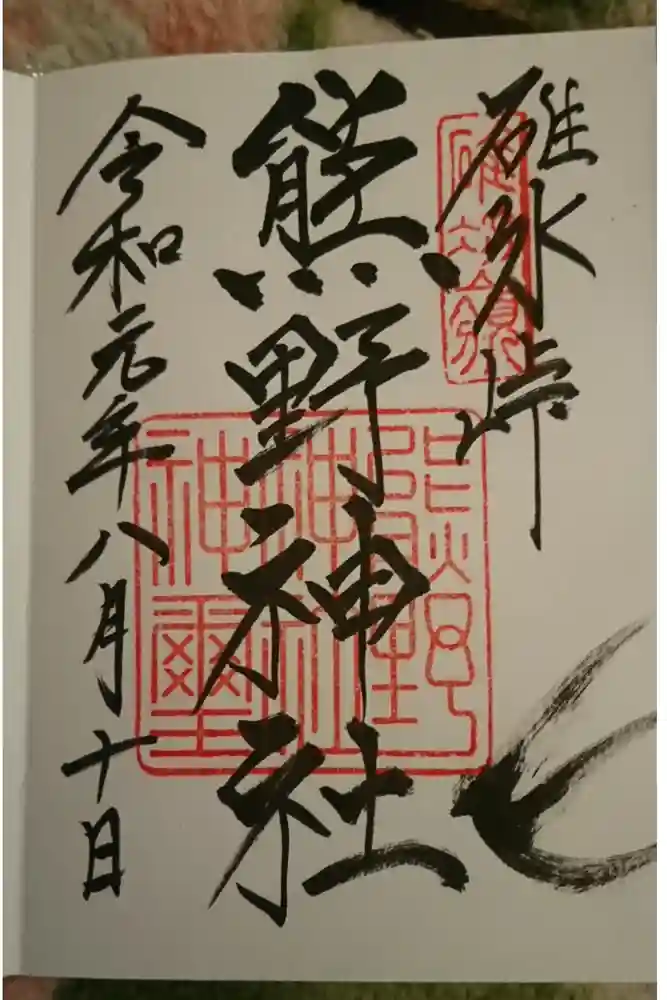 碓氷峠
熊野神社
令和元年八月十日
碓氷嶺
熊野神社神璽